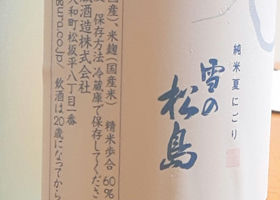 純米夏にごり
雪の松島
国産)、米麹(国産米) 精米歩合 60%
保存方法 冷蔵庫で保存してくださ
蔵酒造株式会社
大和町松坂平八丁目一番
ura.co.jp/ 飲酒は20歳になってから